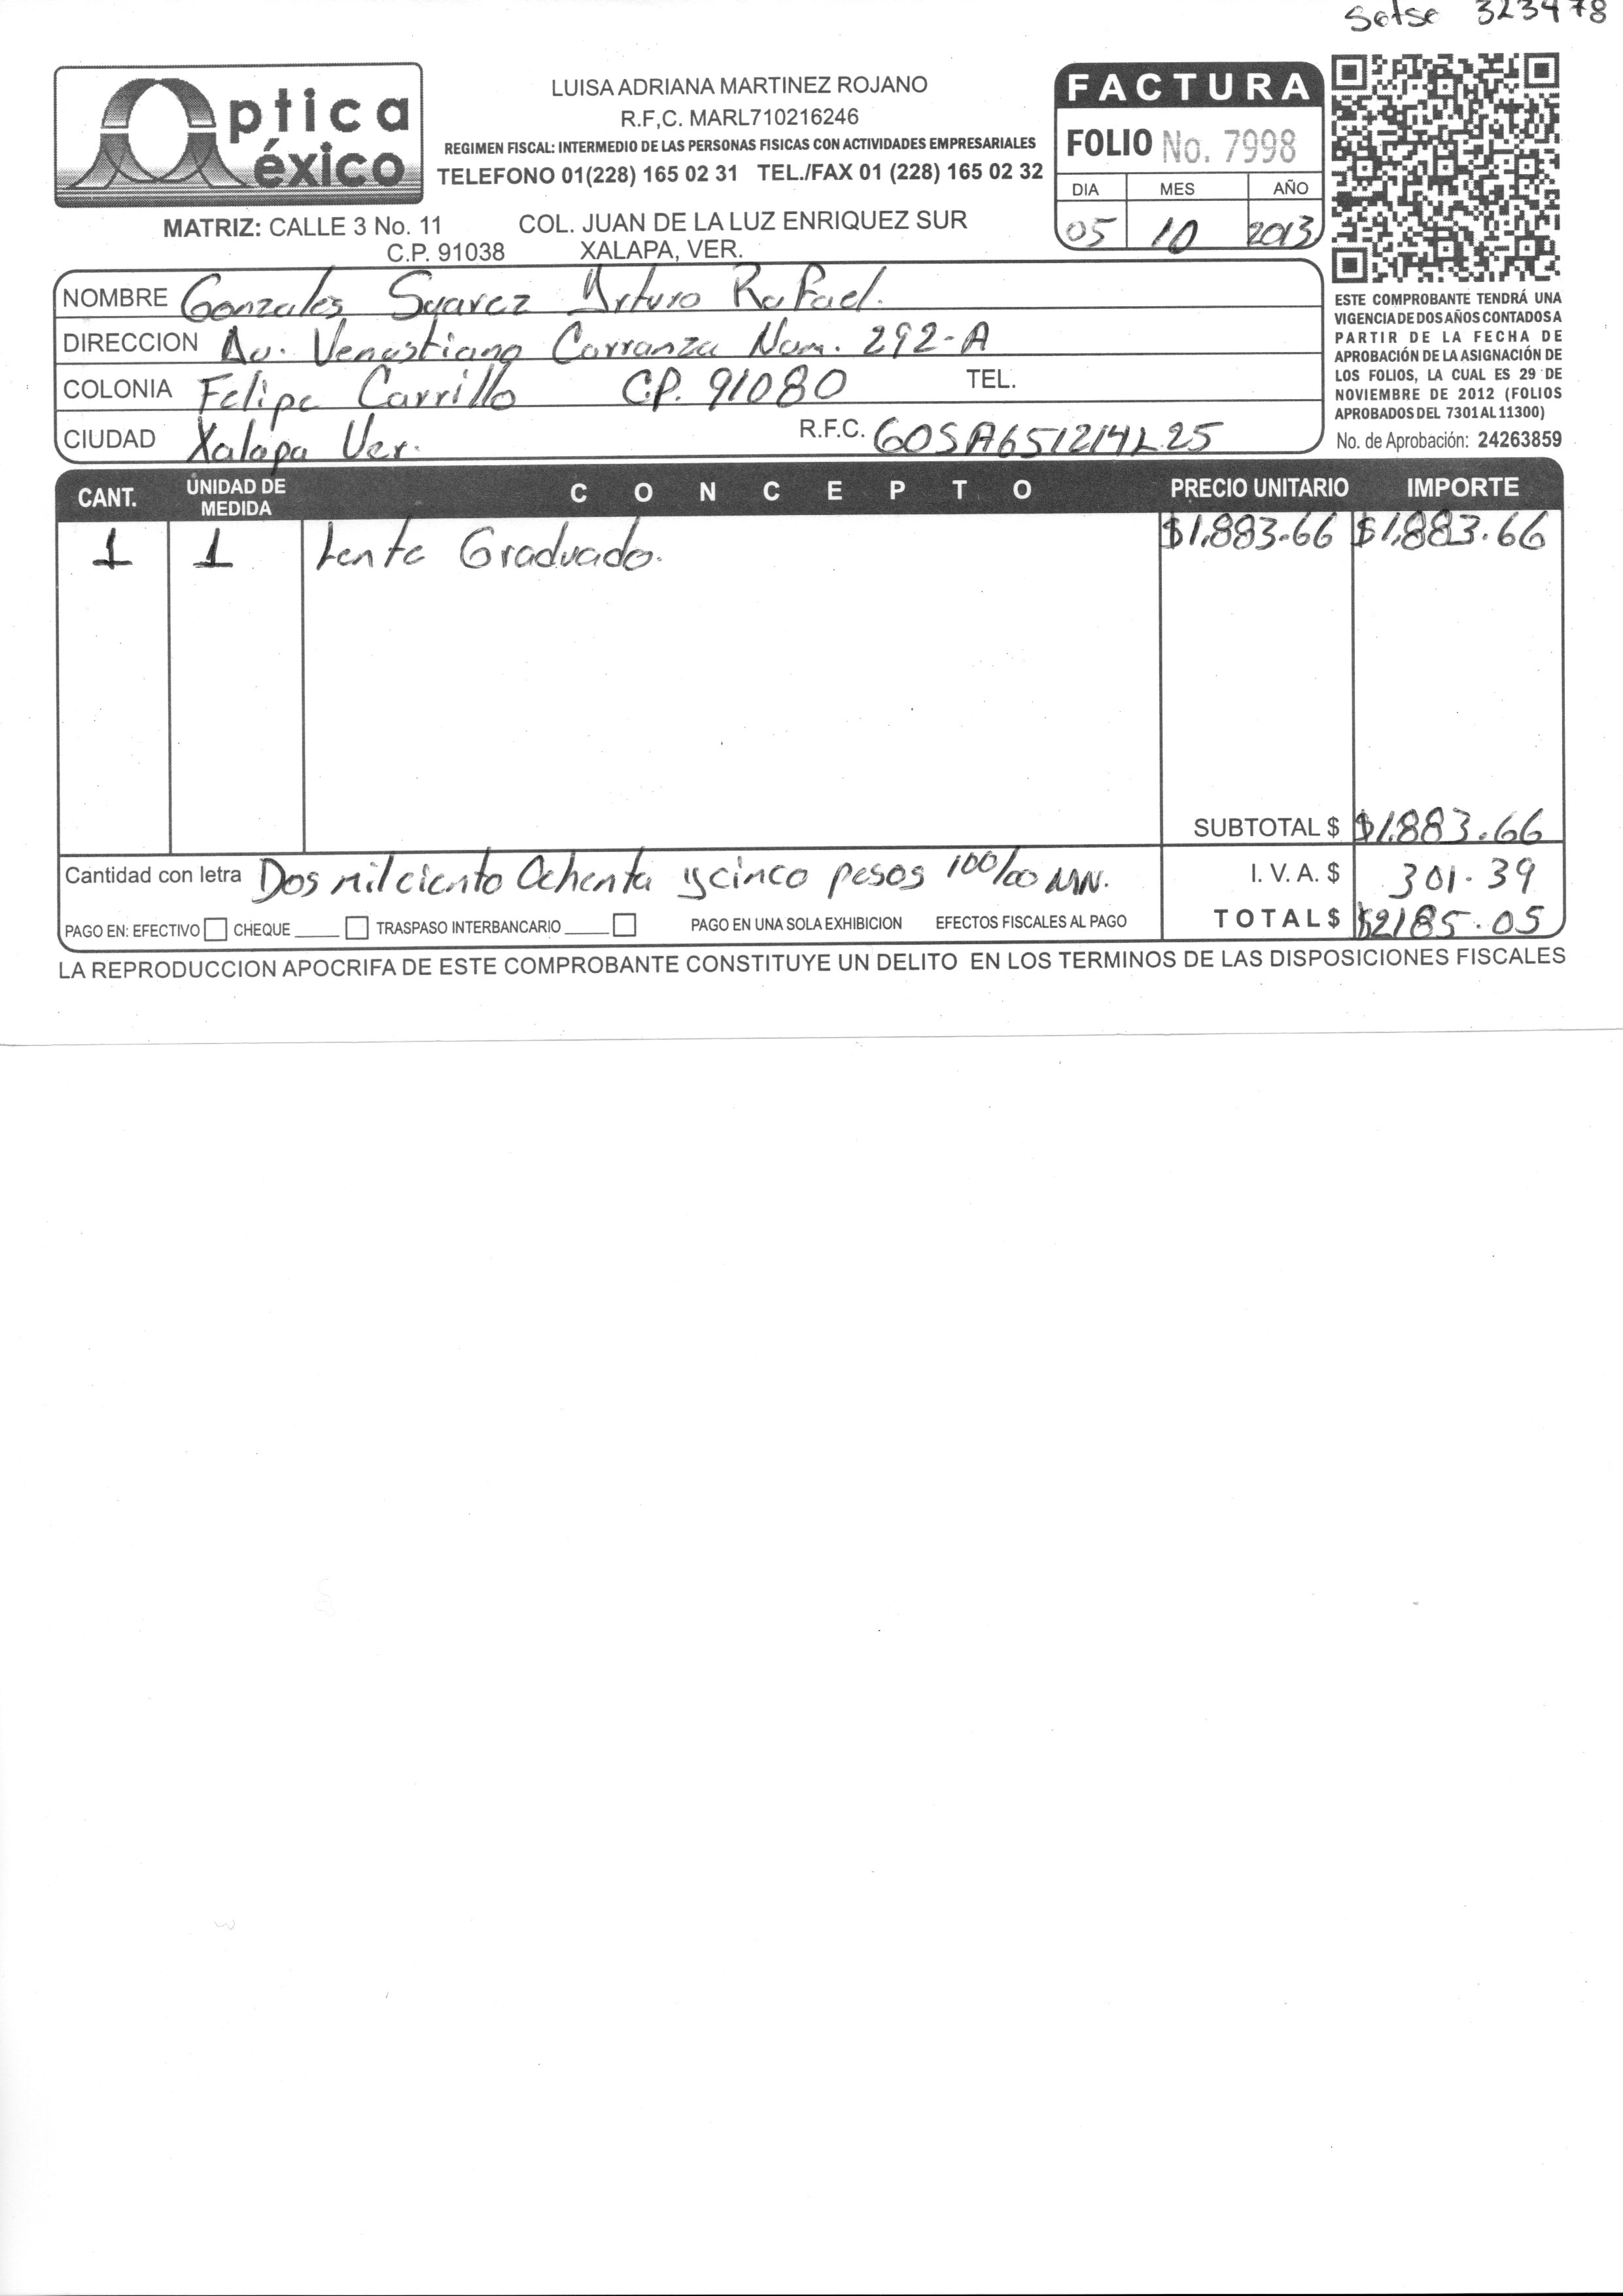 Setse 323478
Optica
México
LUISA ADRIANA MARTINEZ ROJANO
R.F,C. MARL710216246
REGIMEN FISCAL: INTERMEDIO DE LAS PERSONAS FISICAS CON ACTIVIDADES EMPRESARIALES
TELEFONO 01(228) 165 02 31 TEL./FAX 01 (228) 165 02 32
MATRIZ: CALLE 3 No. 11 COL. JUAN DE LA LUZ ENRIQUEZ SUR
C.P. 91038 XALAPA, VER.
FACTURA
FOLIO No. 7998
DIA MES AÑO
05 10 2013
ESTE COMPROBANTE TENDRÁ UNA
VIGENCIA DE DOS AÑOS CONTADOS A
PARTIR DE LA FECHA DE
APROBACIÓN DE LA ASIGNACIÓN DE
LOS FOLIOS, LA CUAL ES 29 DE
NOVIEMBRE DE 2012 (FOLIOS
APROBADOS DEL 7301 AL 11300)
No. de Aprobación: 24263859
NOMBRE Gonzales Suarez Arturo Rafael.
DIRECCION Av. Venustiano Carranza Num. 292-A
COLONIA Felipe Carrillo C.P. 91080 TEL.
CIUDAD Xalapa Ver. R.F.C. GOSA651214L25
CANT. UNIDAD DE MEDIDA CONCEPTO PRECIO UNITARIO IMPORTE
1 1 Lente Graduado. $1,883.66 $1,883.66
SUBTOTAL $ $1,883.66
Cantidad con letra Dos mil ciento Ochenta y cinco pesos 100/00 MN. I. V. A. $ 301.39
PAGO EN: EFECTIVO CHEQUE TRASPASO INTERBANCARIO PAGO EN UNA SOLA EXHIBICION EFECTOS FISCALES AL PAGO TOTAL $ $2185.05
LA REPRODUCCION APOCRIFA DE ESTE COMPROBANTE CONSTITUYE UN DELITO EN LOS TERMINOS DE LAS DISPOSICIONES FISCALES